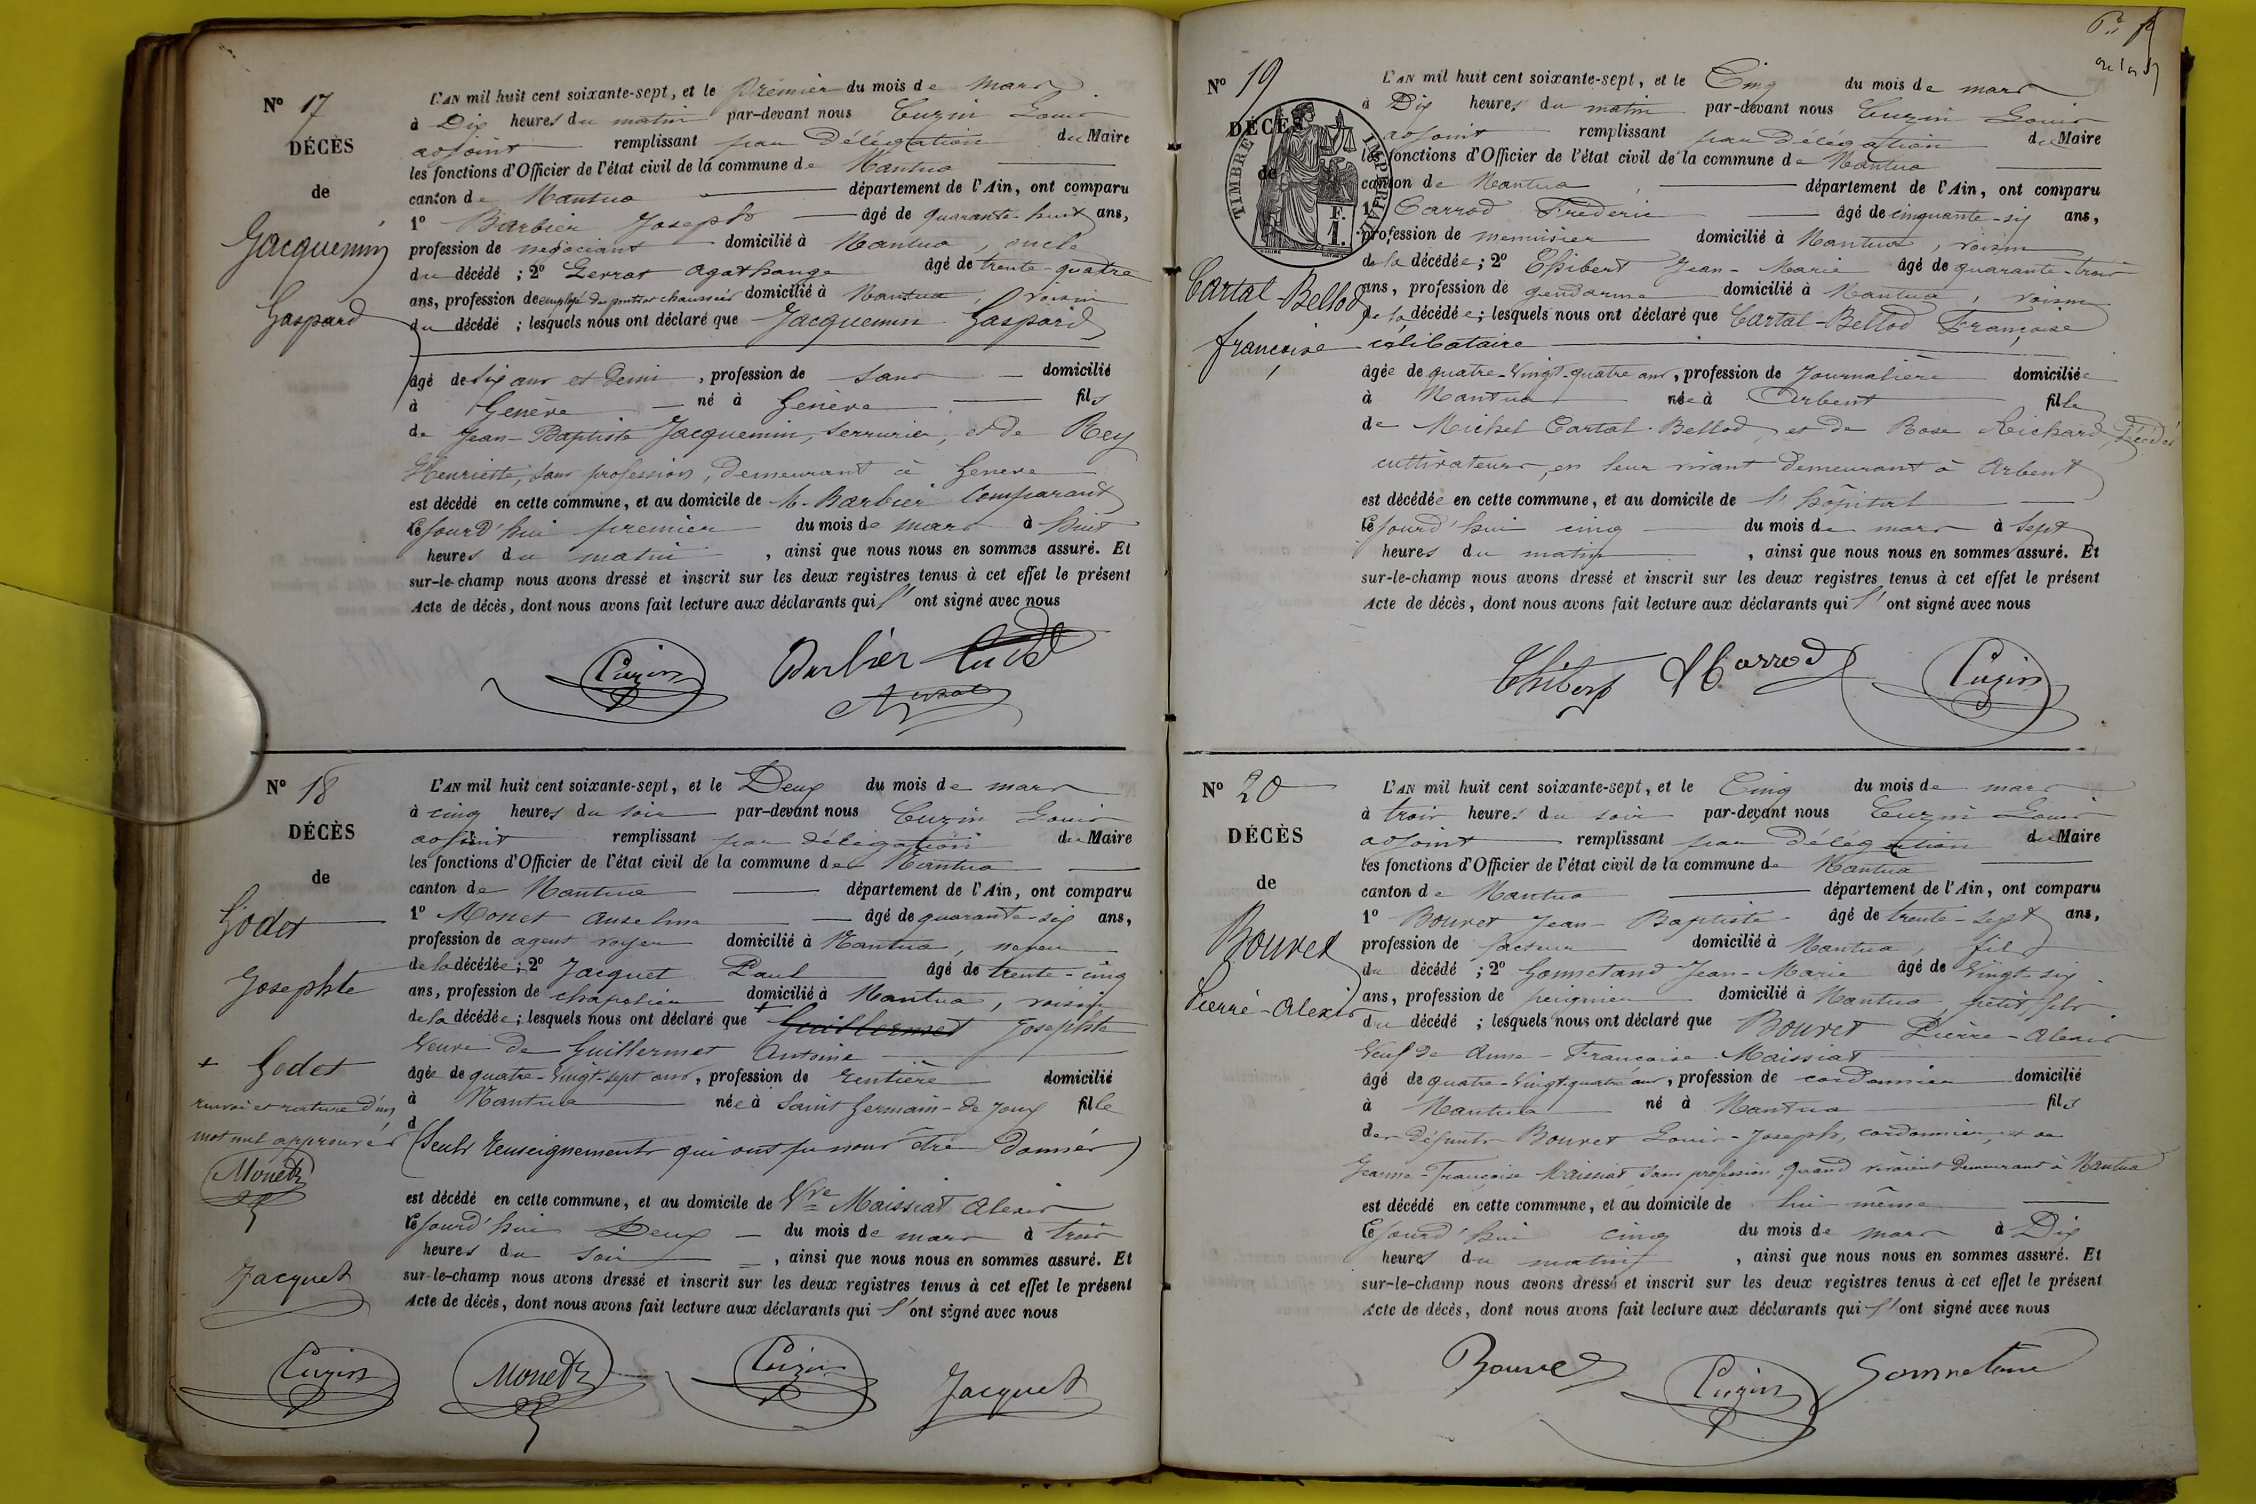 N° 17
DÉCÈS
de
Jacquemin
Gaspard
L'AN mil huit cent soixante-sept, et le Premier du mois de mars
à Dix heures du matin par-devant nous Cuzin Louis
adjoint remplissant par Délégation du Maire
les fonctions d'Officier de l'état civil de la commune de Nantua
canton de Nantua département de l'Ain, ont comparu
1° Barbier Joseph âgé de quarante-huit ans,
profession de négociant domicilié à Nantua, oncle
du décédé ; 2° Gerrat agathange âgé de trente-quatre
ans, profession de employé des ponts et chaussées domicilié à Nantua, voisin
du décédé ; lesquels nous ont déclaré que Jacquemin Gaspard
âgé de six ans et demi, profession de sans domicilié
à Genève né à Genève fils
de Jean-Baptiste Jacquemin, serrurier, et de Rey
Henriette, sans profession, demeurant à Genève
est décédé en cette commune, et au domicile de M. Barbier Comparant
cejourd'hui premier du mois de mars à huit
heures du matin, ainsi que nous nous en sommes assuré. Et
sur-le-champ nous avons dressé et inscrit sur les deux registres tenus à cet effet le présent
Acte de décès, dont nous avons fait lecture aux déclarants qui l'ont signé avec nous
Cuzin Barbier
N° 18
DÉCÈS
de
Godet
Josephte
+ Godet
renvoi et rature d'un
mot nul approuvés
Monet
Jacquet
L'AN mil huit cent soixante-sept, et le Deux du mois de mars
à cinq heures du soir par-devant nous Cuzin Louis
adjoint remplissant par délégation du Maire
les fonctions d'Officier de l'état civil de la commune de Nantua
canton de Nantua département de l'Ain, ont comparu
1° Monet Anselme âgé de quarante-six ans,
profession de agent voyer domicilié à Nantua, neveu
de la décédée ; 2° Jacquet Paul âgé de trente-cinq
ans, profession de chapelier domicilié à Nantua, voisin
de la décédée ; lesquels nous ont déclaré que + Guillermet Josephte
Veuve de Guillermet Antoine
âgée de quatre-vingt-sept ans, profession de rentière domicilié
à Nantua née à Saint Germain-de-Joux fille
d
(Seuls renseignements qui ont pu nous être donnés)
est décédé en cette commune, et au domicile de Vve Maissiat Alexis
cejourd'hui Deux du mois de mars à trois
heures du soir, ainsi que nous nous en sommes assuré. Et
sur-le-champ nous avons dressé et inscrit sur les deux registres tenus à cet effet le présent
Acte de décès, dont nous avons fait lecture aux déclarants qui l'ont signé avec nous
Cuzin Monet Cuzin Jacquet
N° 19
DÉCÈS
de
TIMBRE IMPÉRIAL
F.
1.
Cartal Bellod
françoise
L'AN mil huit cent soixante-sept, et le Cinq du mois de mars
à Dix heures du matin par-devant nous Cuzin Louis
adjoint remplissant par délégation du Maire
les fonctions d'Officier de l'état civil de la commune de Nantua
canton de Nantua département de l'Ain, ont comparu
1° Carrod Frédéric âgé de cinquante-six ans,
profession de menuisier domicilié à Nantua, voisin
de la décédée ; 2° Thibert Jean-Marie âgé de quarante-trois
ans, profession de gendarme domicilié à Nantua, voisin
de la décédée ; lesquels nous ont déclaré que Cartal-Bellod Françoise
célibataire
âgée de quatre-vingt-quatre ans, profession de Journalière domiciliée
à Nantua née à Arbent fille
de Michel Cartal-Bellod, et de Rose Richard, décédés
cultivateurs, en leur vivant demeurant à Arbent
est décédée en cette commune, et au domicile de l'hôpital
cejourd'hui cinq du mois de mars à sept
heures du matin, ainsi que nous nous en sommes assuré. Et
sur-le-champ nous avons dressé et inscrit sur les deux registres tenus à cet effet le présent
Acte de décès, dont nous avons fait lecture aux déclarants qui l'ont signé avec nous
Thibert Carrod Cuzin
N° 20
DÉCÈS
de
Bouvet
Pierre-Alexis
L'AN mil huit cent soixante-sept, et le Cinq du mois de mars
à trois heures du soir par-devant nous Cuzin Louis
adjoint remplissant par Délégation du Maire
les fonctions d'Officier de l'état civil de la commune de Nantua
canton de Nantua département de l'Ain, ont comparu
1° Bouvet Jean-Baptiste âgé de trente-sept ans,
profession de facteur domicilié à Nantua, fils
du décédé ; 2° Gonnetand Jean-Marie âgé de vingt-six
ans, profession de peignier domicilié à Nantua petit fils
du décédé ; lesquels nous ont déclaré que Bouvet Pierre-Alexis
Veuf de Anne-Françoise Maissiat
âgé de quatre-vingt-quatre ans, profession de cordonnier domicilié
à Nantua né à Nantua fils
des défunts Bouvet Louis-Joseph, cordonnier, et de
Jeanne-Françoise Maissiat sans profession, quand vivaient demeurant à Nantua
est décédé en cette commune, et au domicile de lui-même
cejourd'hui cinq du mois de mars à Dix
heures du matin, ainsi que nous nous en sommes assuré. Et
sur-le-champ nous avons dressé et inscrit sur les deux registres tenus à cet effet le présent
Acte de décès, dont nous avons fait lecture aux déclarants qui l'ont signé avec nous
Bouvet Cuzin Gonnetand